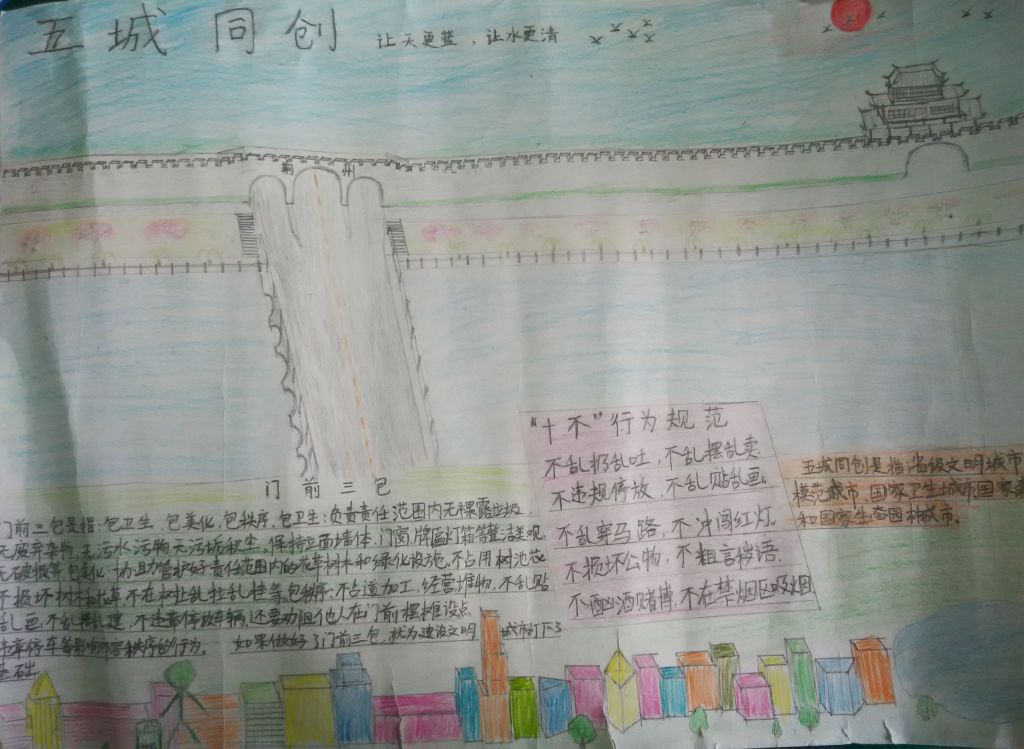 五城同创
让天更蓝，让水更清
荆州
门前三包
门前三包是指：包卫生、包美化，包秩序，包卫生：负责责任范围内无裸露垃圾，
无废弃杂物，无污水污物无污垢积尘，保持立面墙体，门窗牌匾灯箱等整洁美观，
无破损等，包美化：协助管护好责任范围内的花草树木和绿化设施，不占用树池花
不损坏树木花草，不在树上乱拉乱挂等，包秩序：不占道加工，经营堆物，不乱贴
乱画，不乱搭乱建，不违章停放车辆，还要劝阻他人在门前摆摊设点
违章停车等影响市容秩序的行为。 如果做好了门前三包，就为建设文明城市打下了
基础。
“十不”行为规范
不乱扔乱吐，不乱摆乱卖
不违规停放，不乱贴乱画。
不乱穿马路，不冲闯红灯。
不损坏公物，不粗言秽语。
不酗酒赌博，不在禁烟区吸烟
五城同创是指：省级文明城市
模范城市、国家卫生城市国家
和国家生态园林城市。